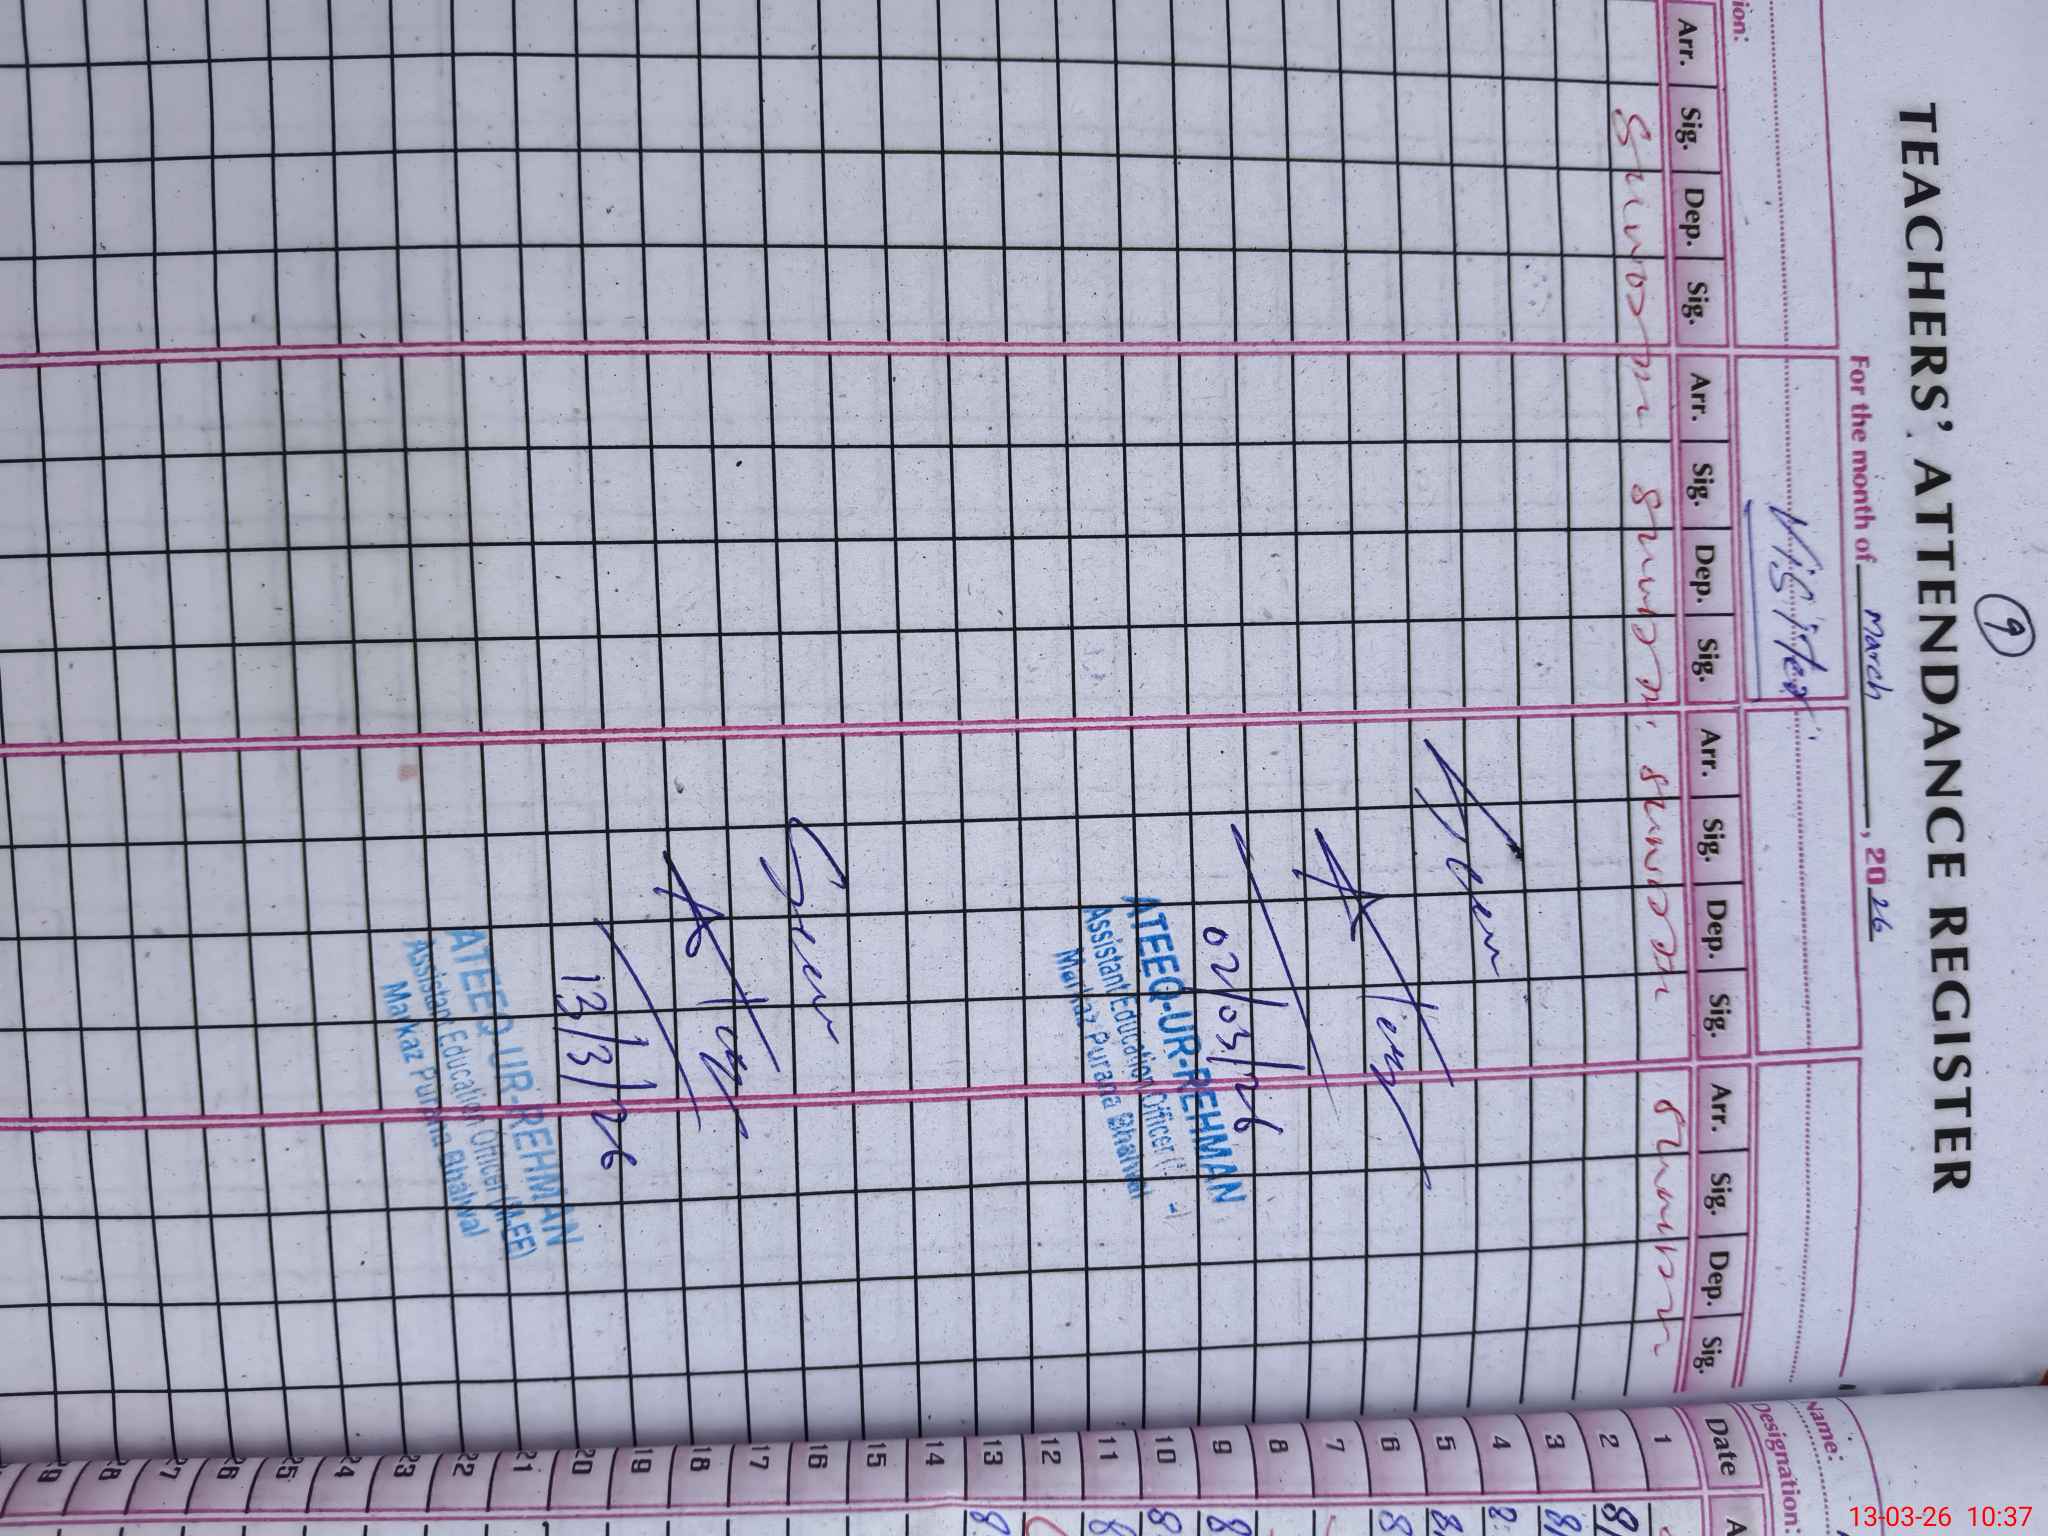 9
TEACHERS' ATTENDANCE REGISTER
For the month of March, 2026
ion:
Visiter
Arr. Sig. Dep. Sig. Arr. Sig. Dep. Sig. Arr. Sig. Dep. Sig. Arr. Sig. Dep. Sig.
Seen
02/03/26
ATEEQ-UR-REHMAN
Assistant Education Officer
Markaz Purana Bhalwal
Seen
13/3/26
ATEEQ-UR-REHMAN
Assistant Education Officer (M-EE)
Markaz Purana Bhalwal
Name:
Designation:
Date A
1
2 8
3 8
4 8
5 8
6 8
7
8
9 8
10 8
11 8
12
13 8
14
15
16
17
18
19
20
21
22
23
24
25
26
27
28
29
13-03-26 10:37